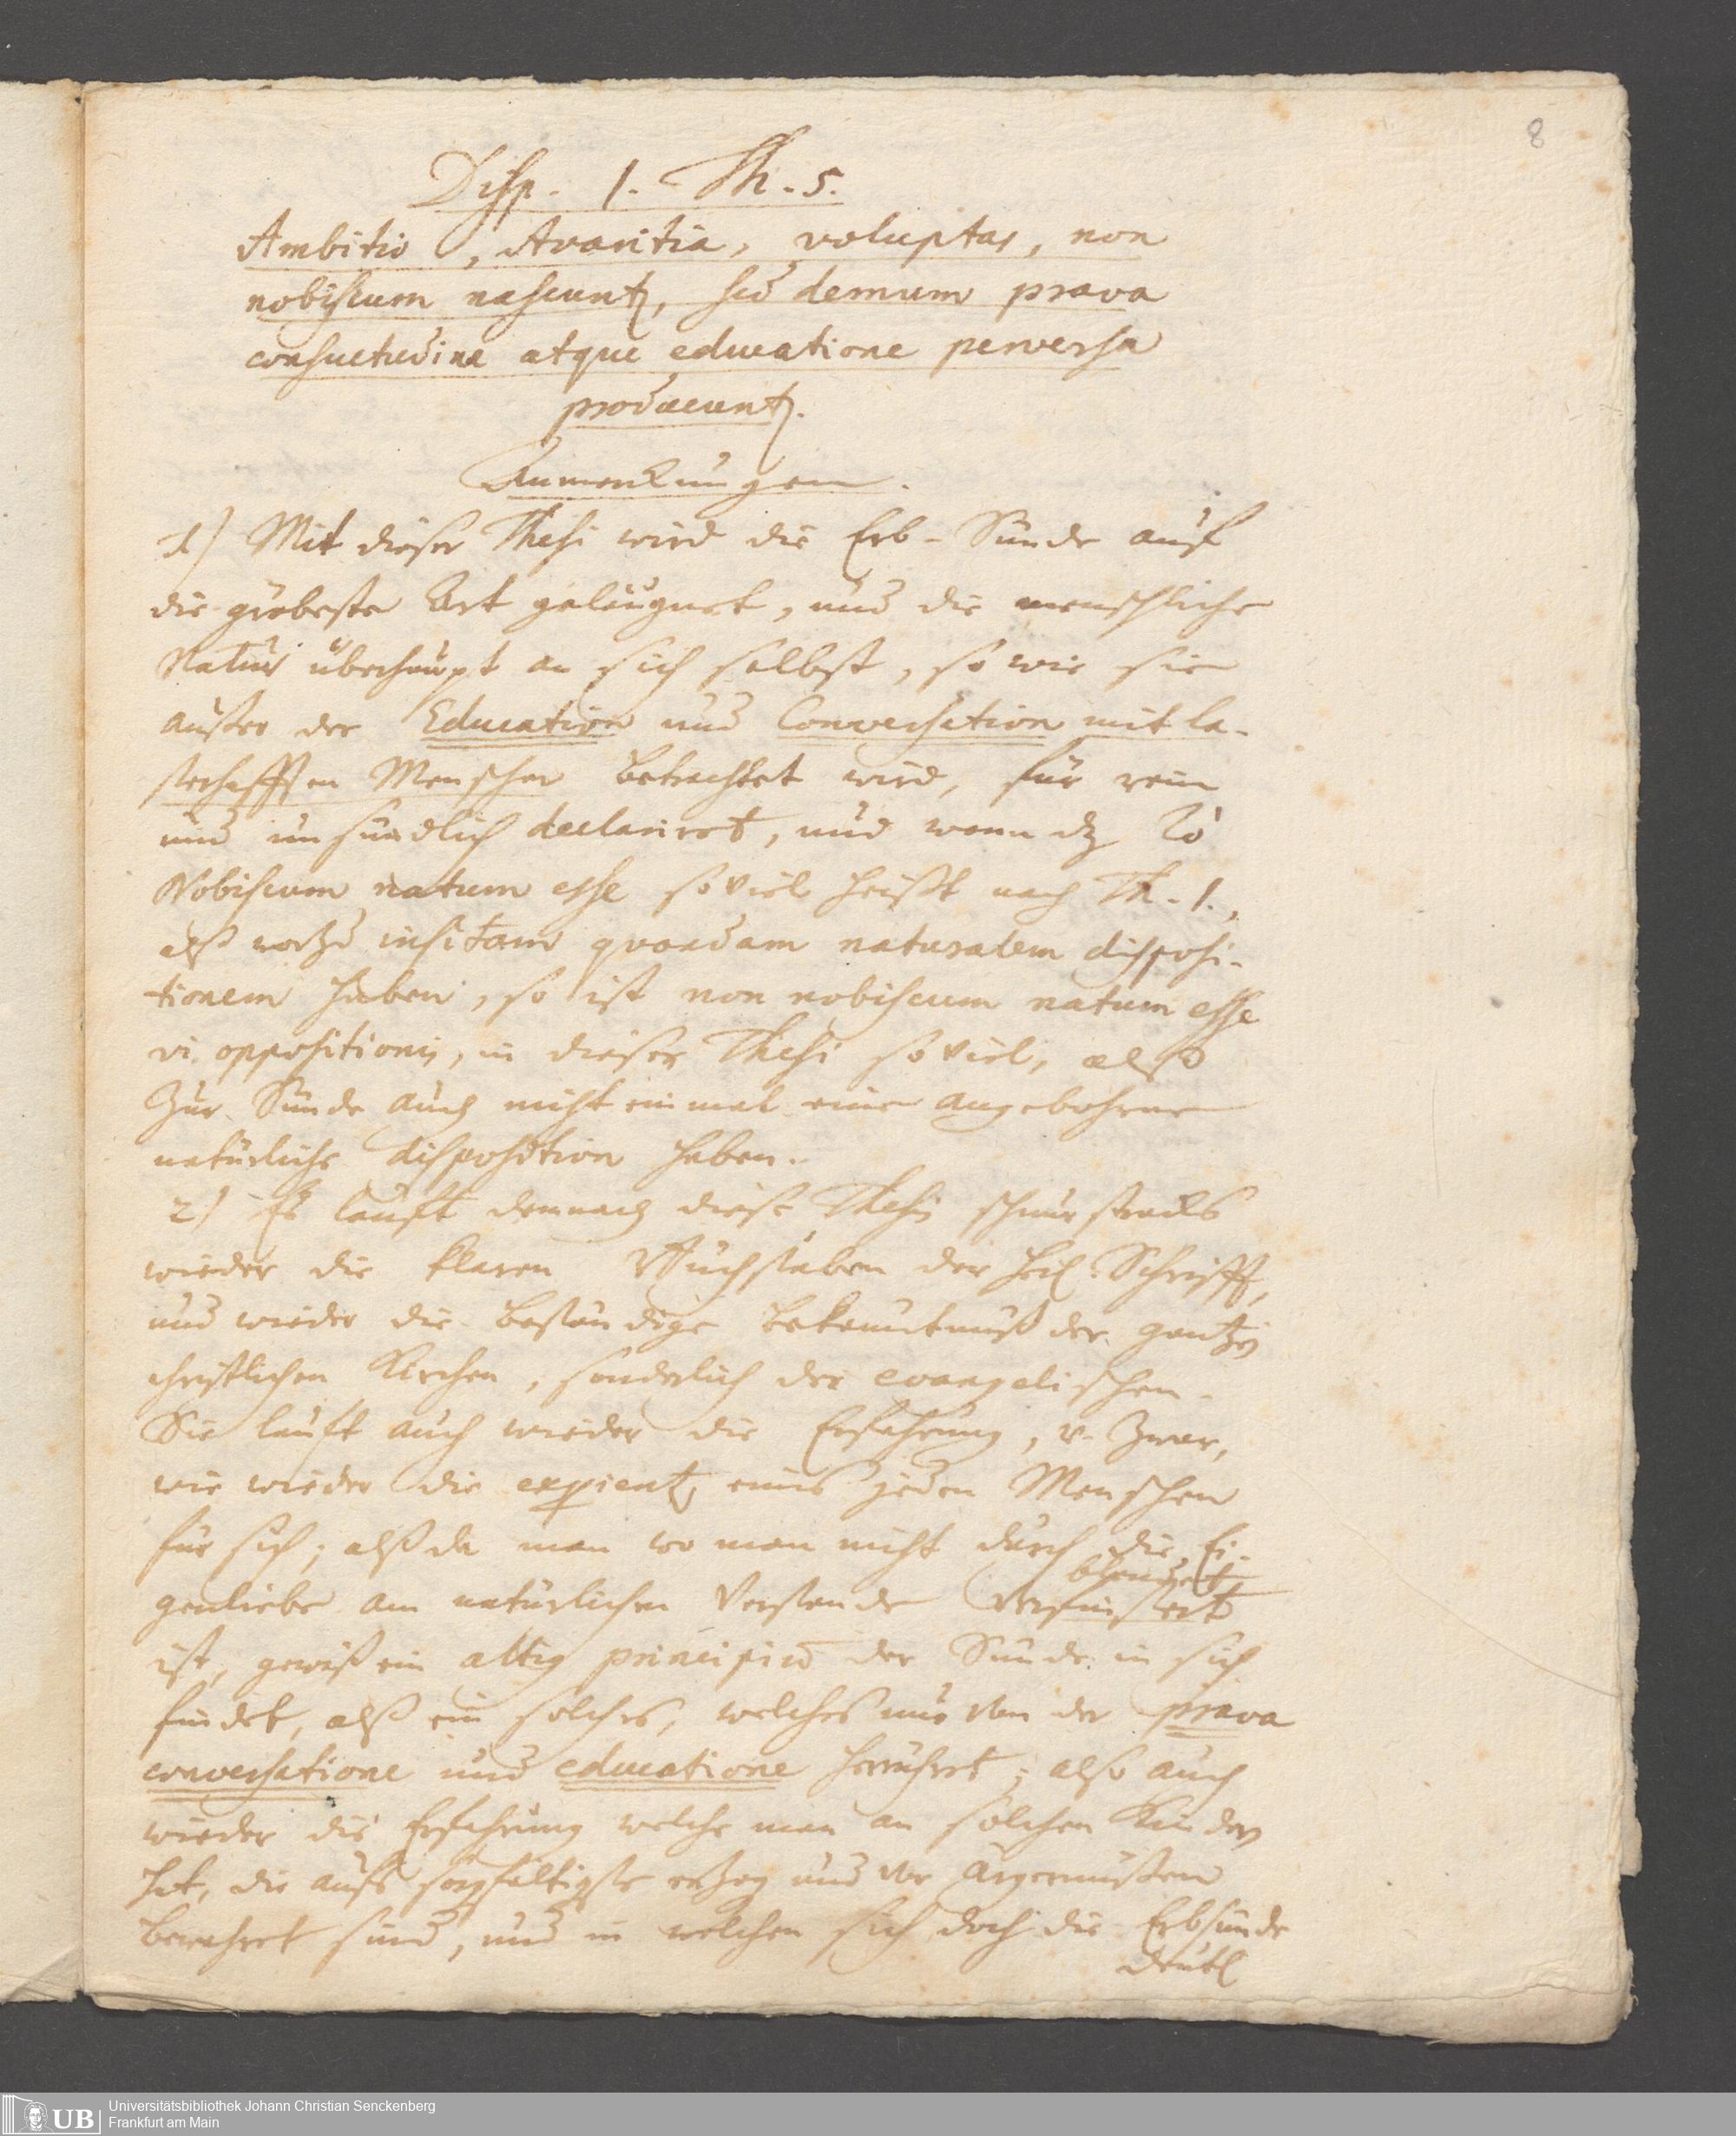 8
Disp. 1. Th. 5.
Ambitio, Avaritia, voluptas, non
nobiscum nascunt, sed demum prava
consuetudine atque educatione perversa
producunt.
Anmerkungen.
1) Mit dieser Thesi wird die Erb-Sünde auf
die gröbeste Art geläugnet, und die menschliche
Natur überhaupt an sich selbst, so wie sie
außer der Education und Conversation mit la-
sterhafften Menschen betrachtet wird, für rein
und unsündlich declariret, und wenn dz τὸ
Nobiscum natum esse so viel heißt nach Th. 1.,
alß insitam quandam naturalem disposi-
tionem haben, so ist non nobiscum natum esse
vi oppositionis, in dieser Thesi so viel, alß
Zur Sünde auch nicht einmal eine angebohrne
natürliche disposition haben.
2) Es laufft demnach diese Thesis schnurstracks
wieder die klaren Buchstaben der Heil. Schrifft,
und wieder die beständige bekenntnuß der gantzen
christlichen Kirchen, sonderlich der evangelischen.
Sie laufft auch wieder die Erfahrung, u. zwar,
wie wieder die experientz eines jeden Menschen
für sich; alß da man wo man nicht durch die Ei-
blendet
genliebe am natürlichen Verstande verfinstert
ist, gewiß ein principium der Sünde in sich
findet, alß ein solches, welches nur von der prava
conversatione und educatione herrühret; also auch
wieder die Erfahrung welche man an solchen Kindern
hat, die aufs sorgfältigste erzogen und vor Ärgernüßen
bewahret sind, und in welchen sich doch die Erbsünde
deutl
UB
Universitätsbibliothek Johann Christian Senckenberg
Frankfurt am Main